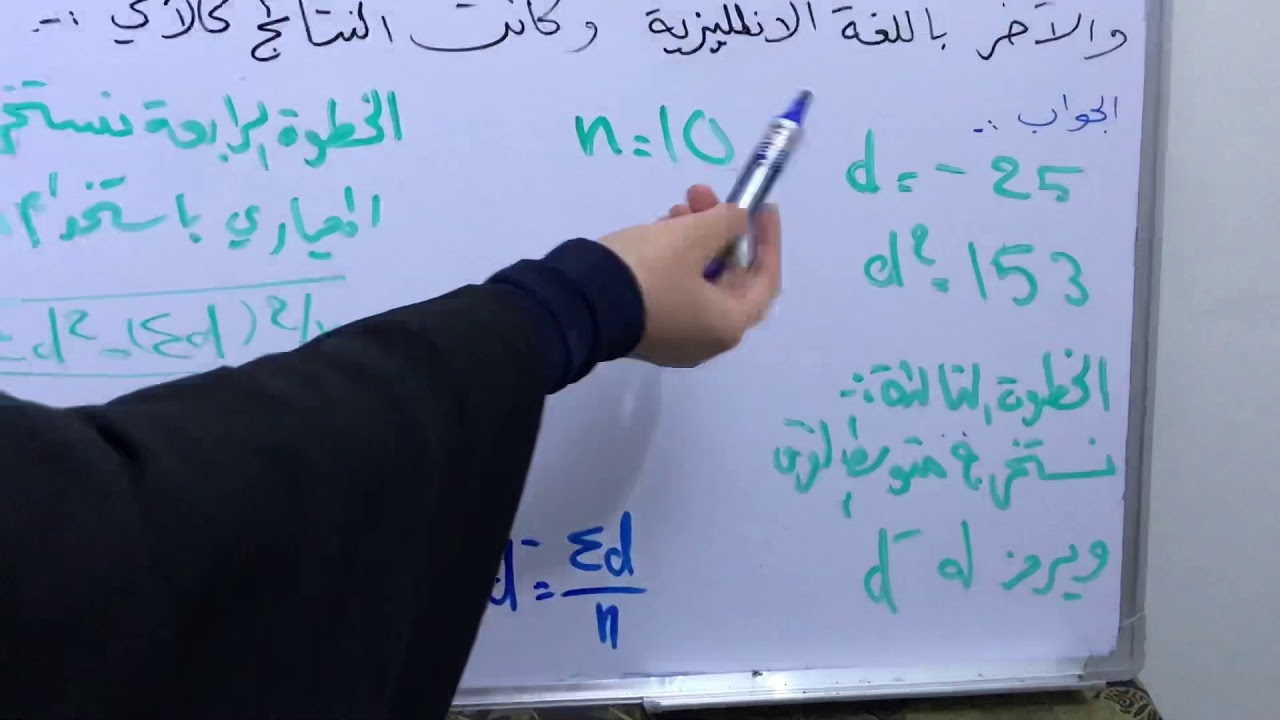 والآخر باللغة الانطليزية وكانت النتائج كالآتي :-
الجواب :-
d = - 25
d² = 153
n = 10
الخطوة الثالثة :-
نستخرج متوسط الفرق
ويرمز له d⁻
d⁻ = Σd
n
الخطوة الرابعة نستخر
المعياري باستخدام
= d² - (Σd)²/